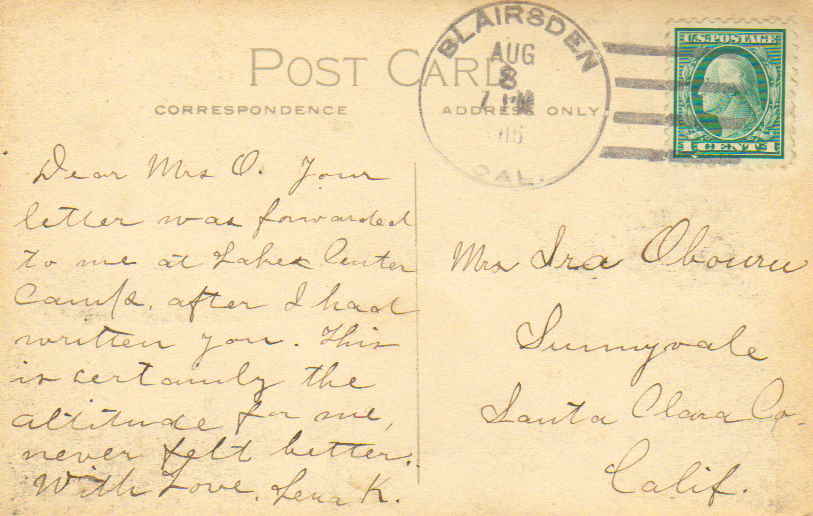 POST CARD
CORRESPONDENCE
ADDRESS ONLY
BLAIRSDEN
AUG
8
CAL.
U.S. POSTAGE
1 CENT 1
Dear Mrs O. Your
letter was forwarded
to me at Lakes Center
Camp, after I had
written you. This
is certainly the
altitude for me,
never felt better.
With Love, Lena K.
Mrs Ira
Sunnyvale
Santa Clara Co.
Calif.